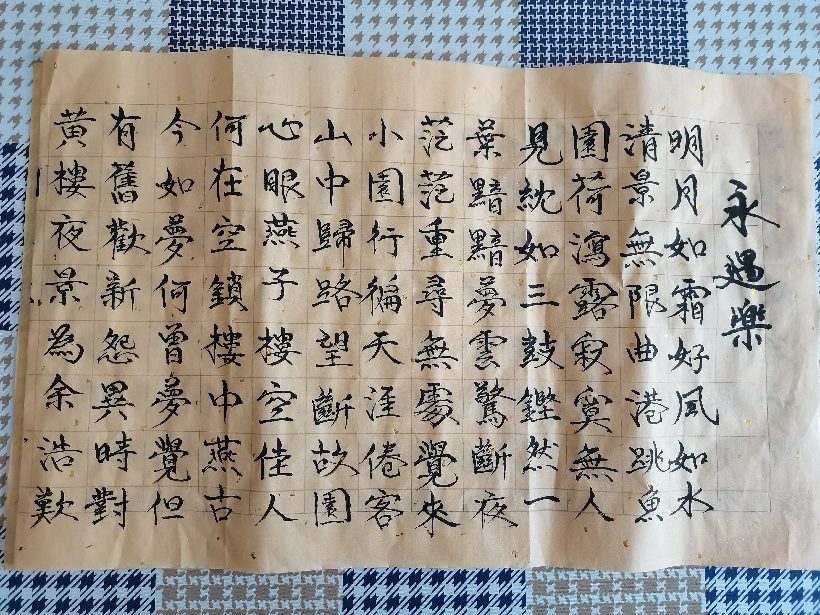 永遇樂
明月如霜好風如水
清景無限曲港跳魚
園荷瀉露寂寞無人
見紞如三鼓鏗然一
葉黯黯夢雲驚斷夜
茫茫重尋無處覺來
小園行徧天涯倦客
山中歸路望斷故園
心眼燕子樓空佳人
何在空鎖樓中燕古
今如夢何曾夢覺但
有舊歡新怨異時對
黃樓夜景為余浩歎